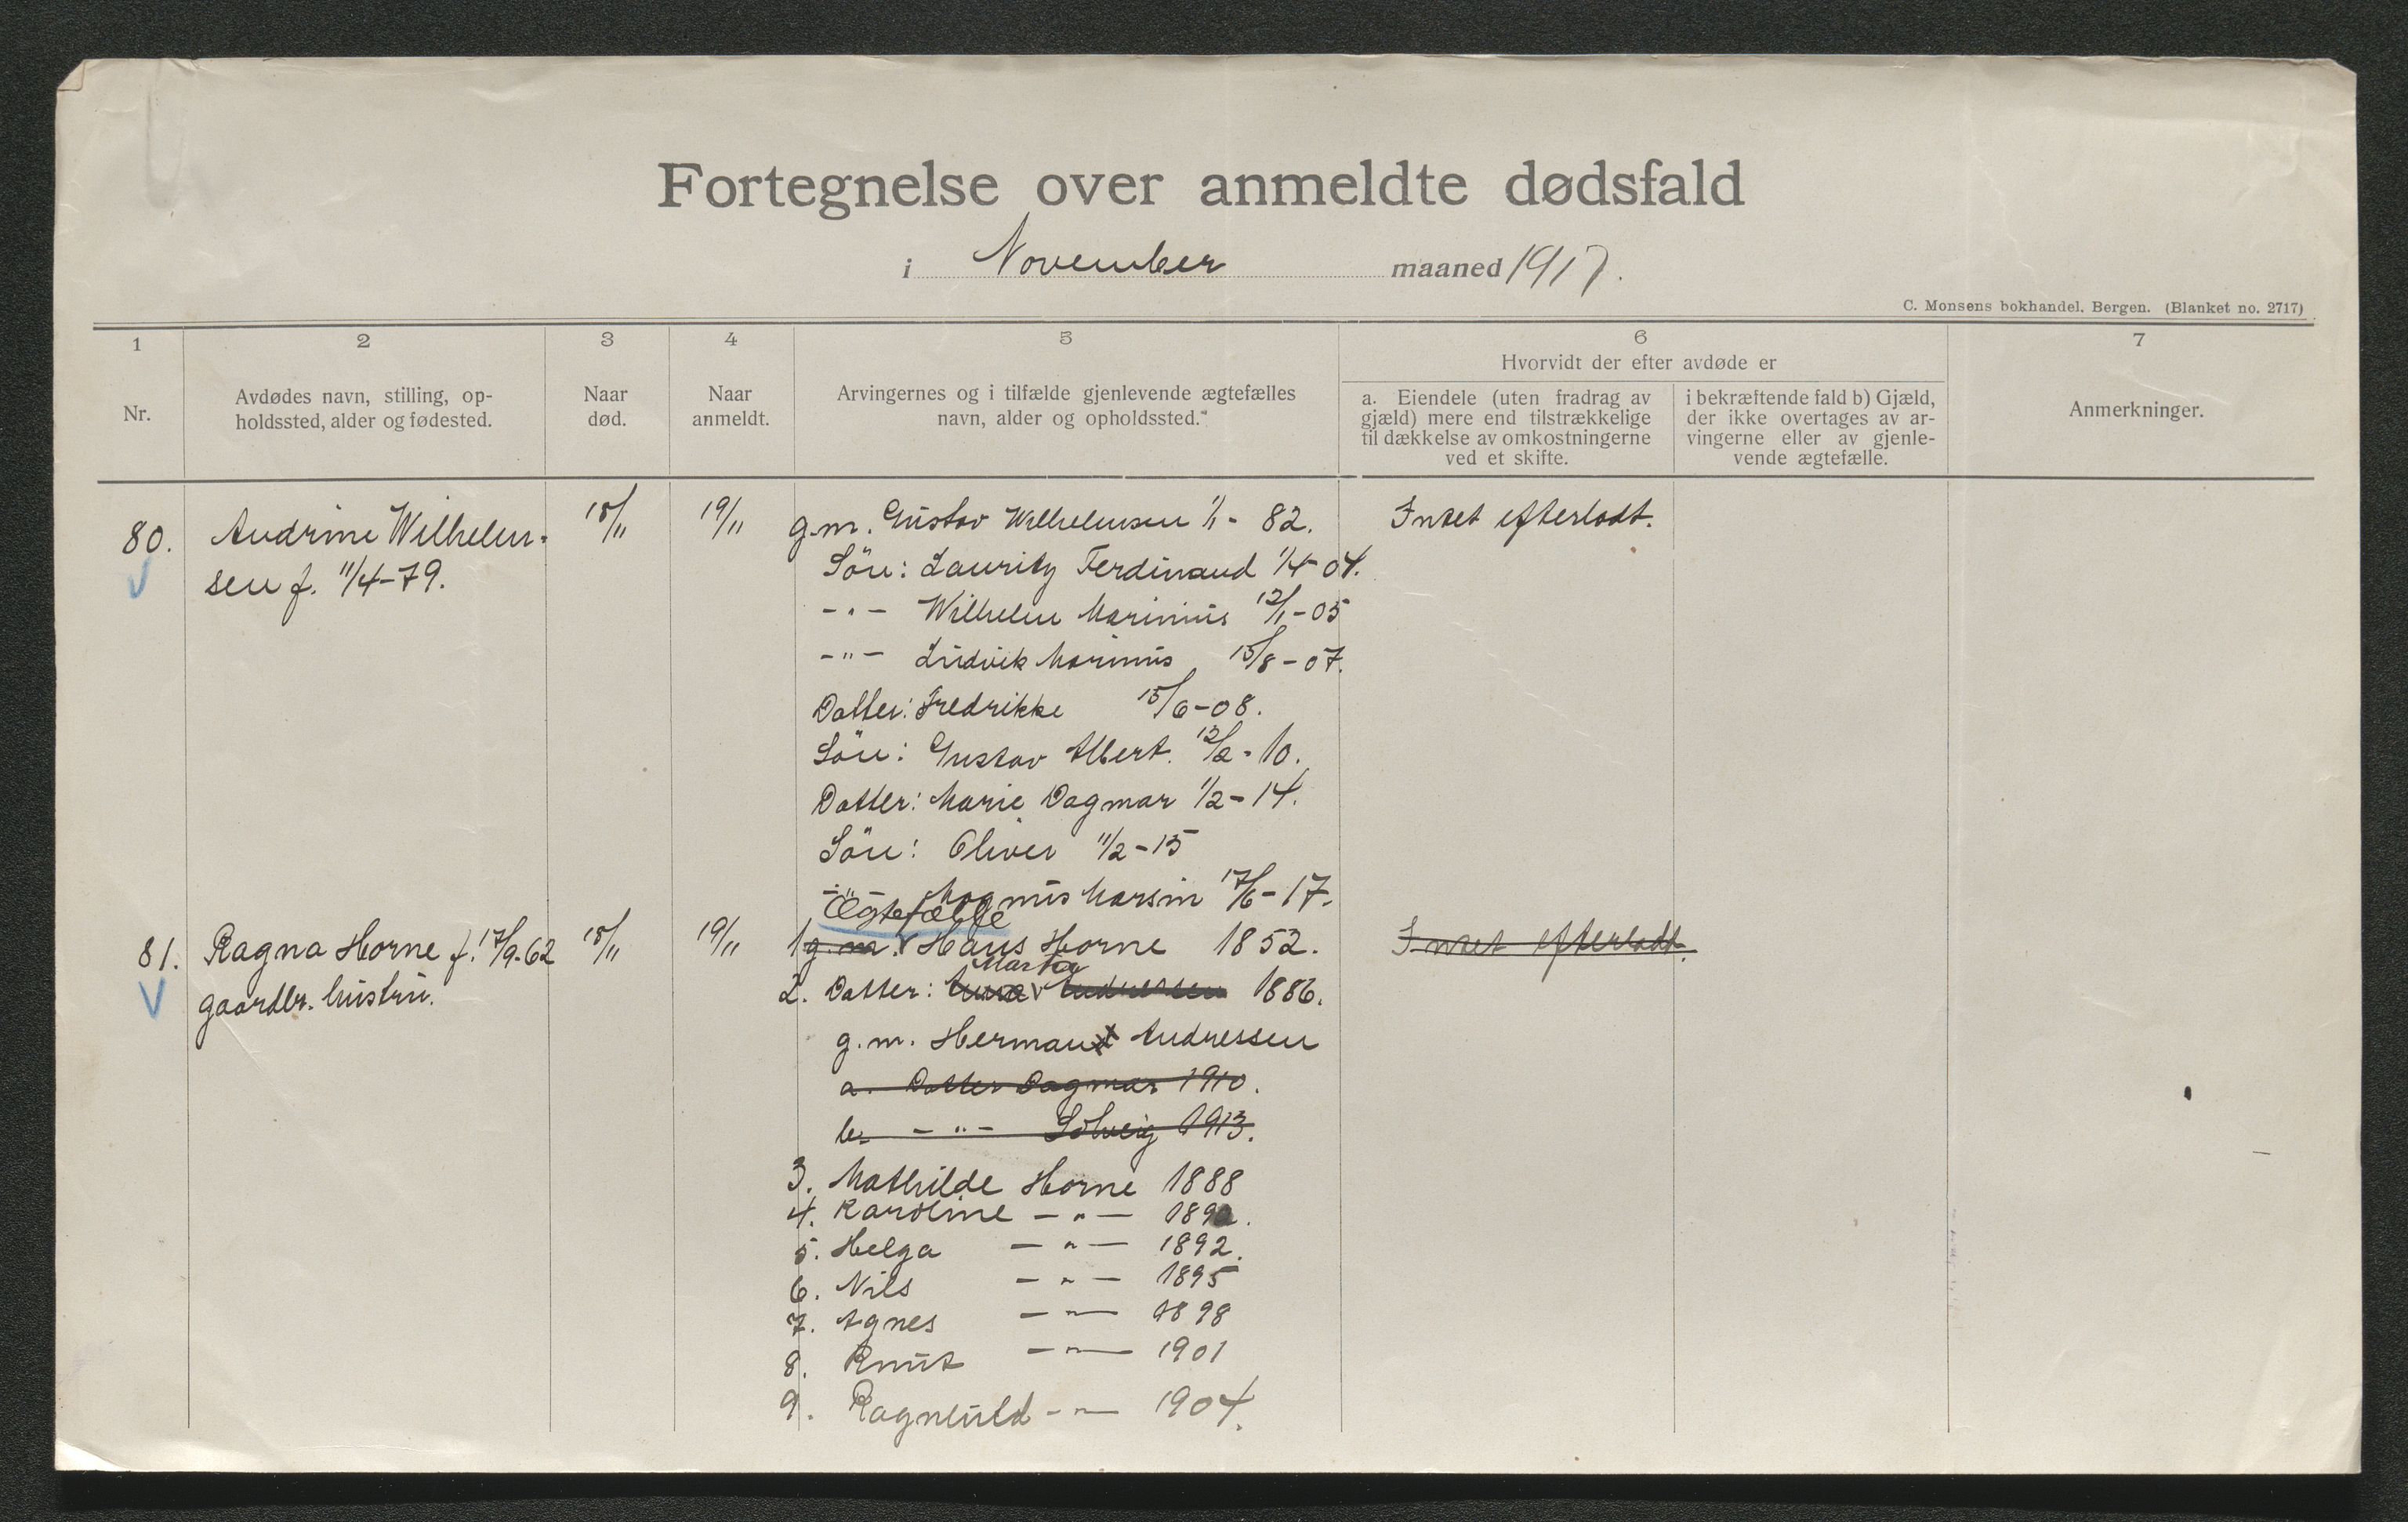 Fortegnelse over anmeldte dødsfald
i November maaned 1917.
C. Monsens bokhandel, Bergen. (Blanket no. 2717)
1 2 3 4 5 6 7
Nr.
Avdødes navn, stilling, op-
holdssted, alder og fødested.
Naar
død.
Naar
anmeldt.
Arvingernes og i tilfælde gjenlevende ægtefælles
navn, alder og opholdssted.
Hvorvidt der efter avdøde er
a. Eiendele (uten fradrag av
gjæld) mere end tilstrækkelige
til dækkelse av omkostningerne
ved et skifte.
i bekræftende fald b) Gjæld,
der ikke overtages av ar-
vingerne eller av gjenle-
vende ægtefælle.
Anmerkninger.
80. Andrine Wilhelm- 18/11 19/11 g.m. Gustav Wilhelmsen 1/1 - 82. Intet efterladt.
sen f. 11/4-79.
Sön: Lauritz Ferdinand 1/4-04.
-"- Wilhelm Marinius 12/1-05
-"- Ludvik Marinus 15/8-07.
Datter: Fredrikke 15/6-08.
Sön: Gustav Albert. 12/2-10.
Datter: Marie Dagmar 1/2-14.
Sön: Oliver 11/2-15
-"- Magnus 17/6-17.
Ægtefælle
81. Ragna Horne f. 17/9-62 18/11 19/11 1 g.m. Hans Horne 1852. Intet efterladt.
gaardbr. hustru.
Marta
2. Datter: Andressen 1886.
g.m. Herman Andressen
a. Datter Dagmar 1910.
b. -"- Solveig 1913.
3. Mathilde Horne 1888
4. Karoline -"-
5. Helga -"- 1892.
6. Nils -"- 1895
7. Agnes -"- 1898
8. Knut -"- 1901
9. Ragnhild -"- 1904.